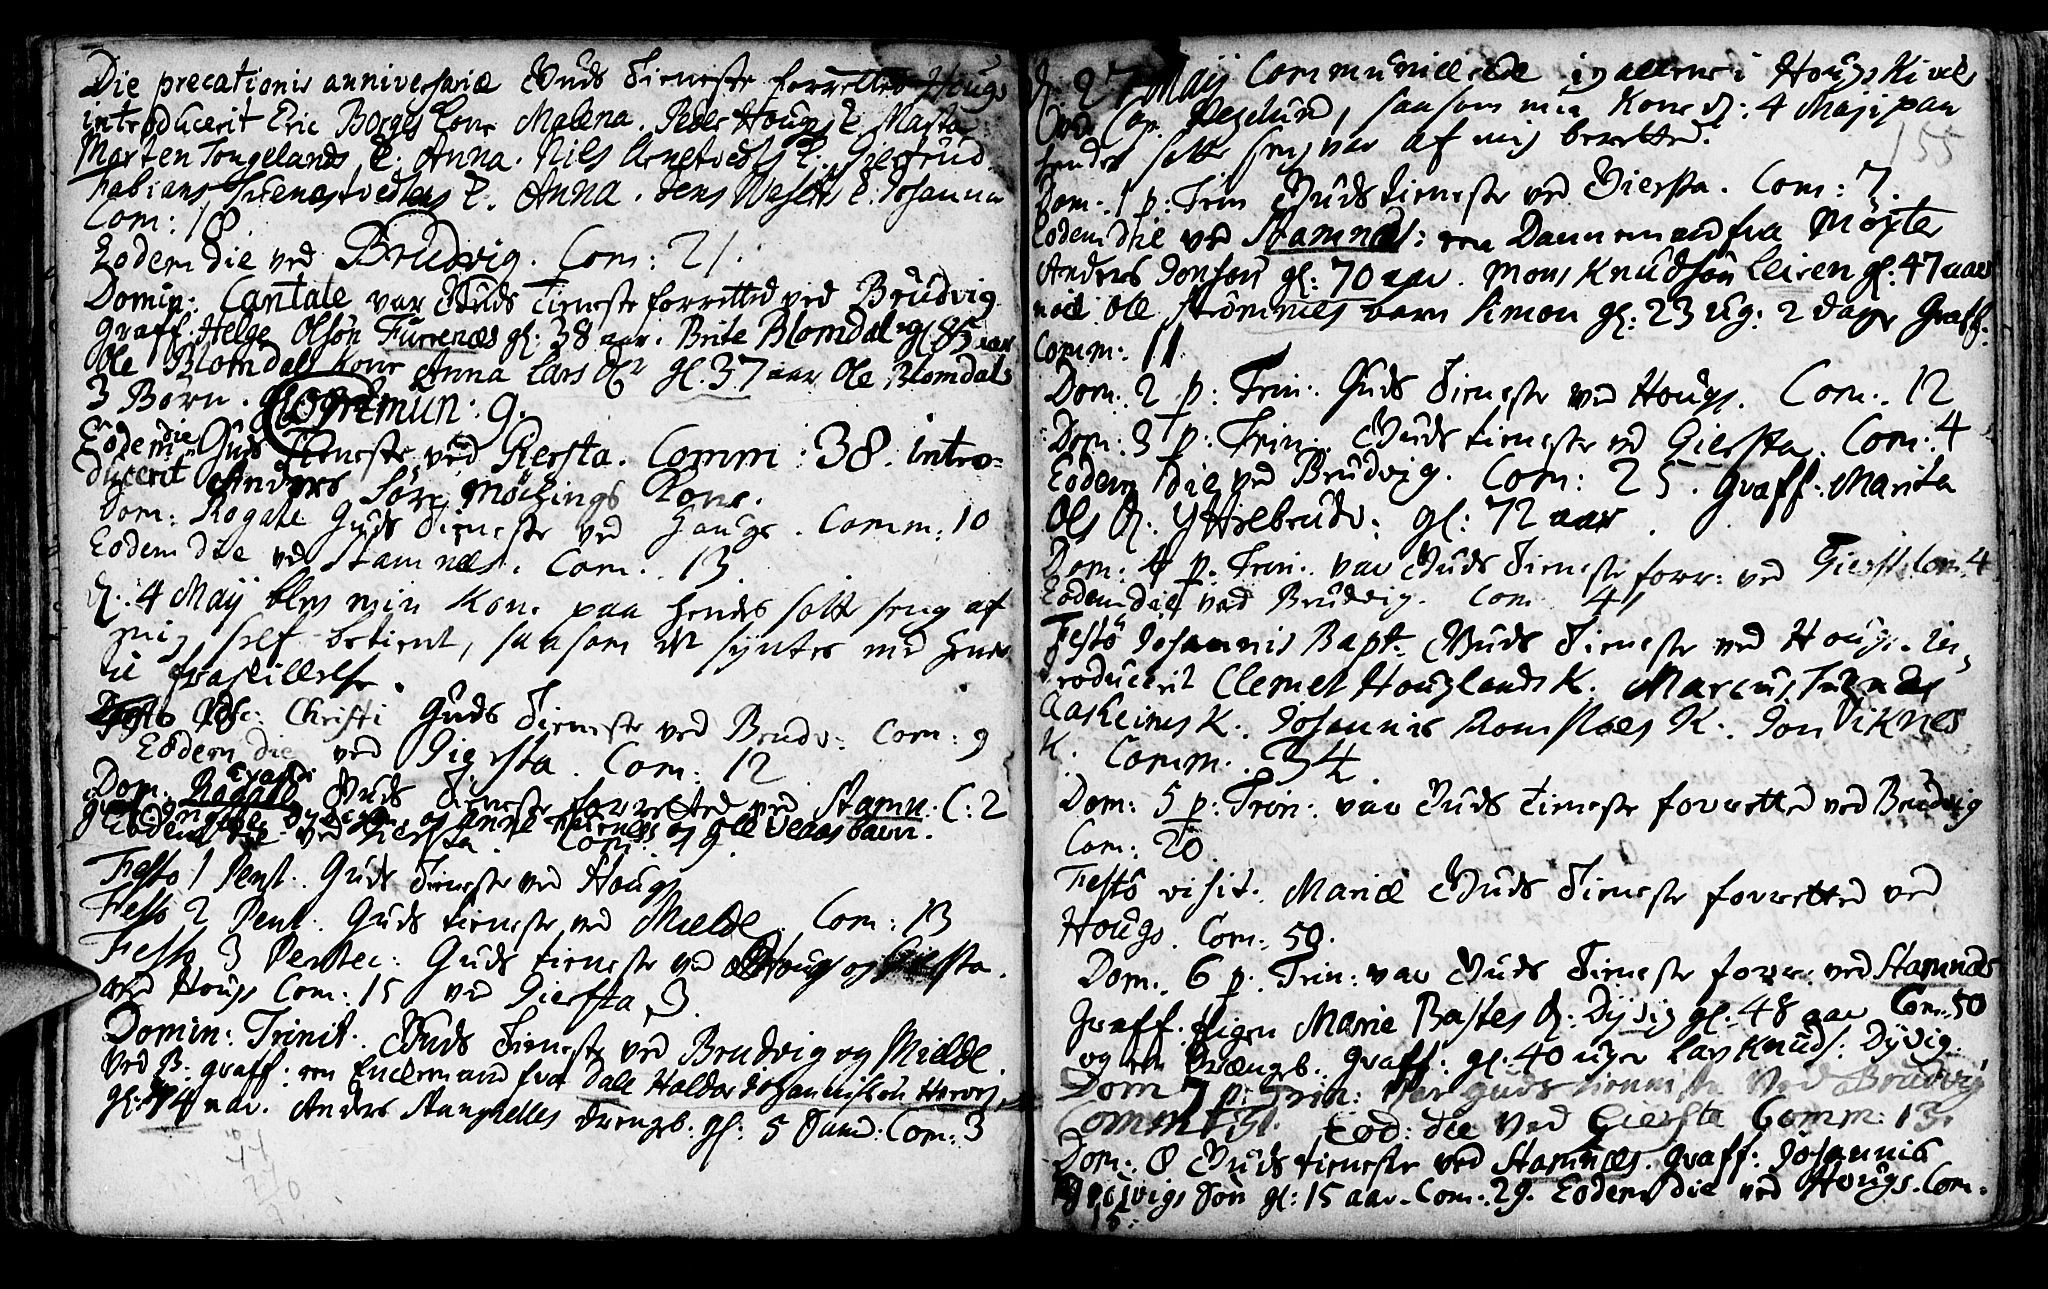 Die precationis anniversariæ Guds tieneste forrettet Hougs
introducerit Eric Borges kone Malena. Peder Hougs K. Marta
Marten Tongelands K. Anna. Nils K. Giertrud
Fabians K. Anna. Jens K. Johanna
Com: 18
Eodem die ved Brudvig. Com: 21.
Domin: Cantate var Guds tieneste forrettet ved Brudvig
graff: Helge Olsøn Furrenæs gl: 38 aar. Brite Blomdal gl: 85 aar
Ole Blomdals kone Anna Lars Dr gl. 37 aar Ole Blomdals
3 Børn. Commun: 9.
Eodem die Guds tieneste ved Giersta. Comm: 38. intro-
ducerit Anders Kone.
Dom: Rogate Guds tieneste ved Haugs. Comm: 10
Eodem die ved Stamnæs. Com: 13
d: 4 Maij blev min Kone paa hendes sotte seng af
mig self betient, saasom det syntes med hende
til fraskillelse.
Festo Asc: Christi Guds tieneste ved Brudv: Com: 9
Eodem die ved Giersta. Com: 12
Dom. Exaudi Guds tieneste forrettet ved Stamn: C: 2
og Ole barn.
Eodem die ved Giersta. Com: 19.
Festo 1 Pent. Guds tieneste ved Hougs
Festo 2 Pent. Guds tieneste ved Mielde. Com: 13
Festo 3 Pentec: Guds tieneste ved Hougs og Giersta.
ved Hougs Com: 15 ved Giersta 3.
Domin: Trinit. Guds tieneste ved Brudvig og Mielde.
ved B: graff: en Enckemand fra Dale Haldor Johannissøn
gl: 74 aar. Anders Stanghelles drengb. gl: 5 Com: 3
d: 27 Maij Communicerede i Hougs Kirke
Cap. Reglund, saasom min Kone d: 4 Maji paa
hendes sotte seng var af mig berettet.
155
Dom: 1 p: Trin Guds tieneste ved Giersta. Com: 7.
Eodem die ved Stamnæs: en Dannemand fra Møxter
Anders Jonsøn gl: 70 aar. Mons Knudsøn Leiren gl: 47 aar
Ole Strømmes barn Simon gl: 23 ug: 2 dage Graff:
Comm: 11
Dom: 2 p: Trin: Guds tieneste ved Hougs. Com: 12
Dom: 3 p: Trin: Guds tieneste ved Giersta. Com: 4
Eodem die ved Brudvig. Com: 25. graff: Marita
Ols D. Yttrebrudv: gl: 72 aar.
Dom: 4 p: Trin: var Guds tieneste forr: ved Gierst: Com: 4
Eodem die ved Brudvig. Com 41
Festo Johannis Bapt: Guds tieneste ved Hougs. in-
troducerit Clemet Houglands K. Marcus
K. Johannis K. Jon Viknes
K. Comm: 34.
Dom: 5 p: Trin: var Guds tieneste forrettet ved Brudvig
Com: 20.
Festo visit: Mariæ Guds tieneste forrettet ved
Hougs. Com: 50.
Dom. 6 p: Trin: var Guds tieneste forr: ved Stamnæs
Graff: Pigen Marie D: Dyvig gl: 48 aar Com: 50
og en drængb. graff: gl: 40 uger Lars Knuds: Dyvig:
Dom 7 p: Trin: var guds tienniste ved Brudvig
Comm: 31. Eod: die ved Giersta Comm: 13.
Dom: 8 Guds tieneste ved Stamnæs. graff: Johannis
Søn gl: 15 aar. Com: 29. Eodem die ved Hougs. Com:
15.